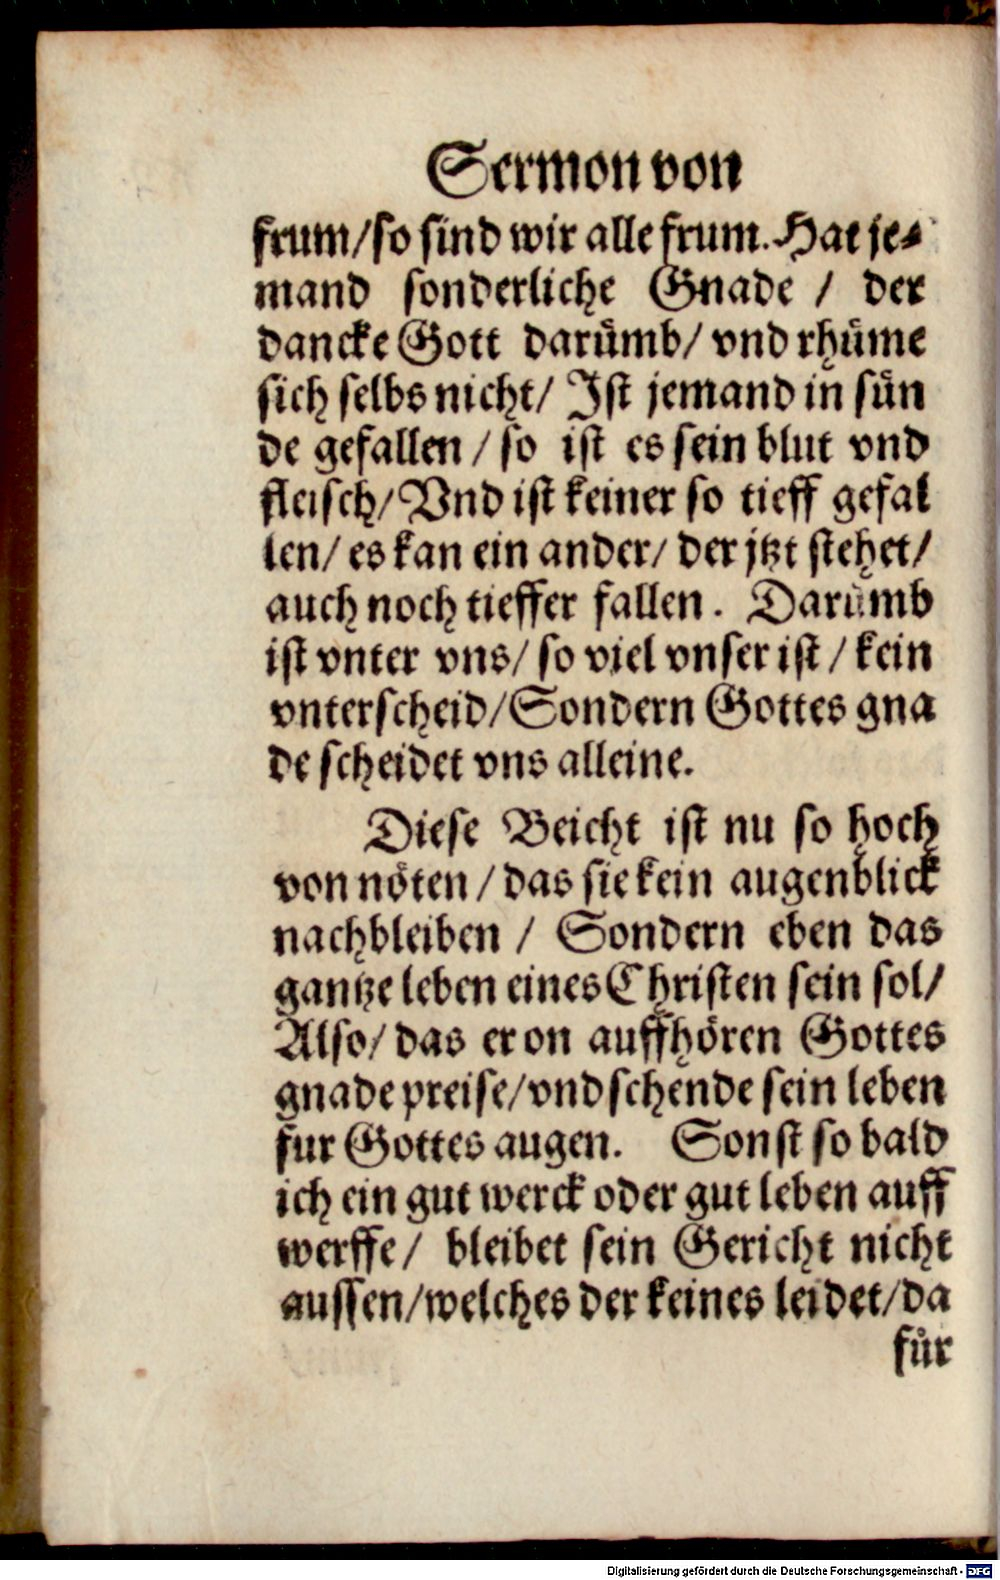 Sermon von
frum/so sind wir alle frum. Hat je⸗
mand sonderliche Gnade / der
dancke Gott darümb/ vnd rhüme
sich selbs nicht/ Ist jemand in sün
de gefallen / so ist es sein blut vnd
fleisch/ Vnd ist keiner so tieff gefal
len/ es kan ein ander/ der jtzt stehet/
auch noch tieffer fallen. Darümb
ist vnter vns/ so viel vnser ist / kein
vnterscheid/ Sondern Gottes gna
de scheidet vns alleine.
Diese Beicht ist nu so hoch
von nöten / das sie kein augenblick
nachbleiben / Sondern eben das
gantze leben eines Christen sein sol/
Also/ das er on auffhören Gottes
gnade preise/ vnd schende sein leben
fur Gottes augen. Sonst so bald
ich ein gut werck oder gut leben auff
werffe/ bleibet sein Gericht nicht
aussen/ welches der keines leidet/ da
für
Digitalisierung gefördert durch die Deutsche Forschungsgemeinschaft - DFG